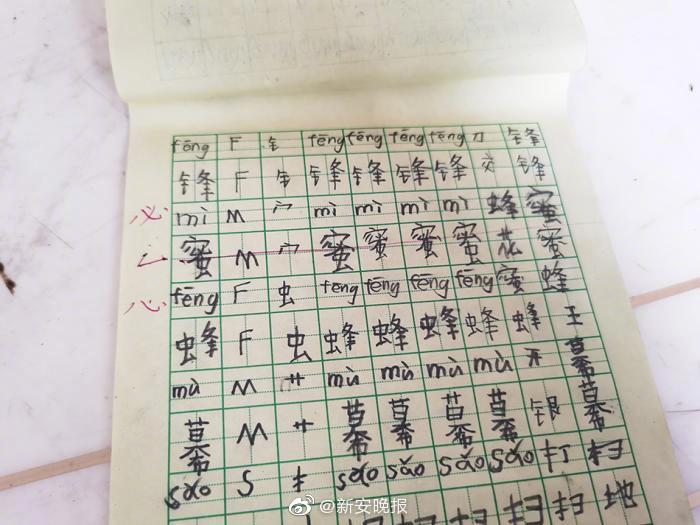 fēng F 钅 fēng fēng fēng fēng 刀 锋
锋 F 钅 锋 锋 锋 锋 交 锋
必 mì M 宀 mì mì mì mì 蜂 蜜
蜜 M 宀 蜜 蜜 蜜 蜜 花 蜜
心 fēng F 虫 feng fēng fēng fēng 蜜 蜂
蜂 F 虫 蜂 蜂 蜂 蜂 蜂 王
mù M 艹 mù mù mù mù 开 幕
幕 M 艹 幕 幕 幕 幕 银 幕
sǎo S 扌 sǎo sǎo sǎo sǎo 打 扫
扫 扫 地
@新安晚报